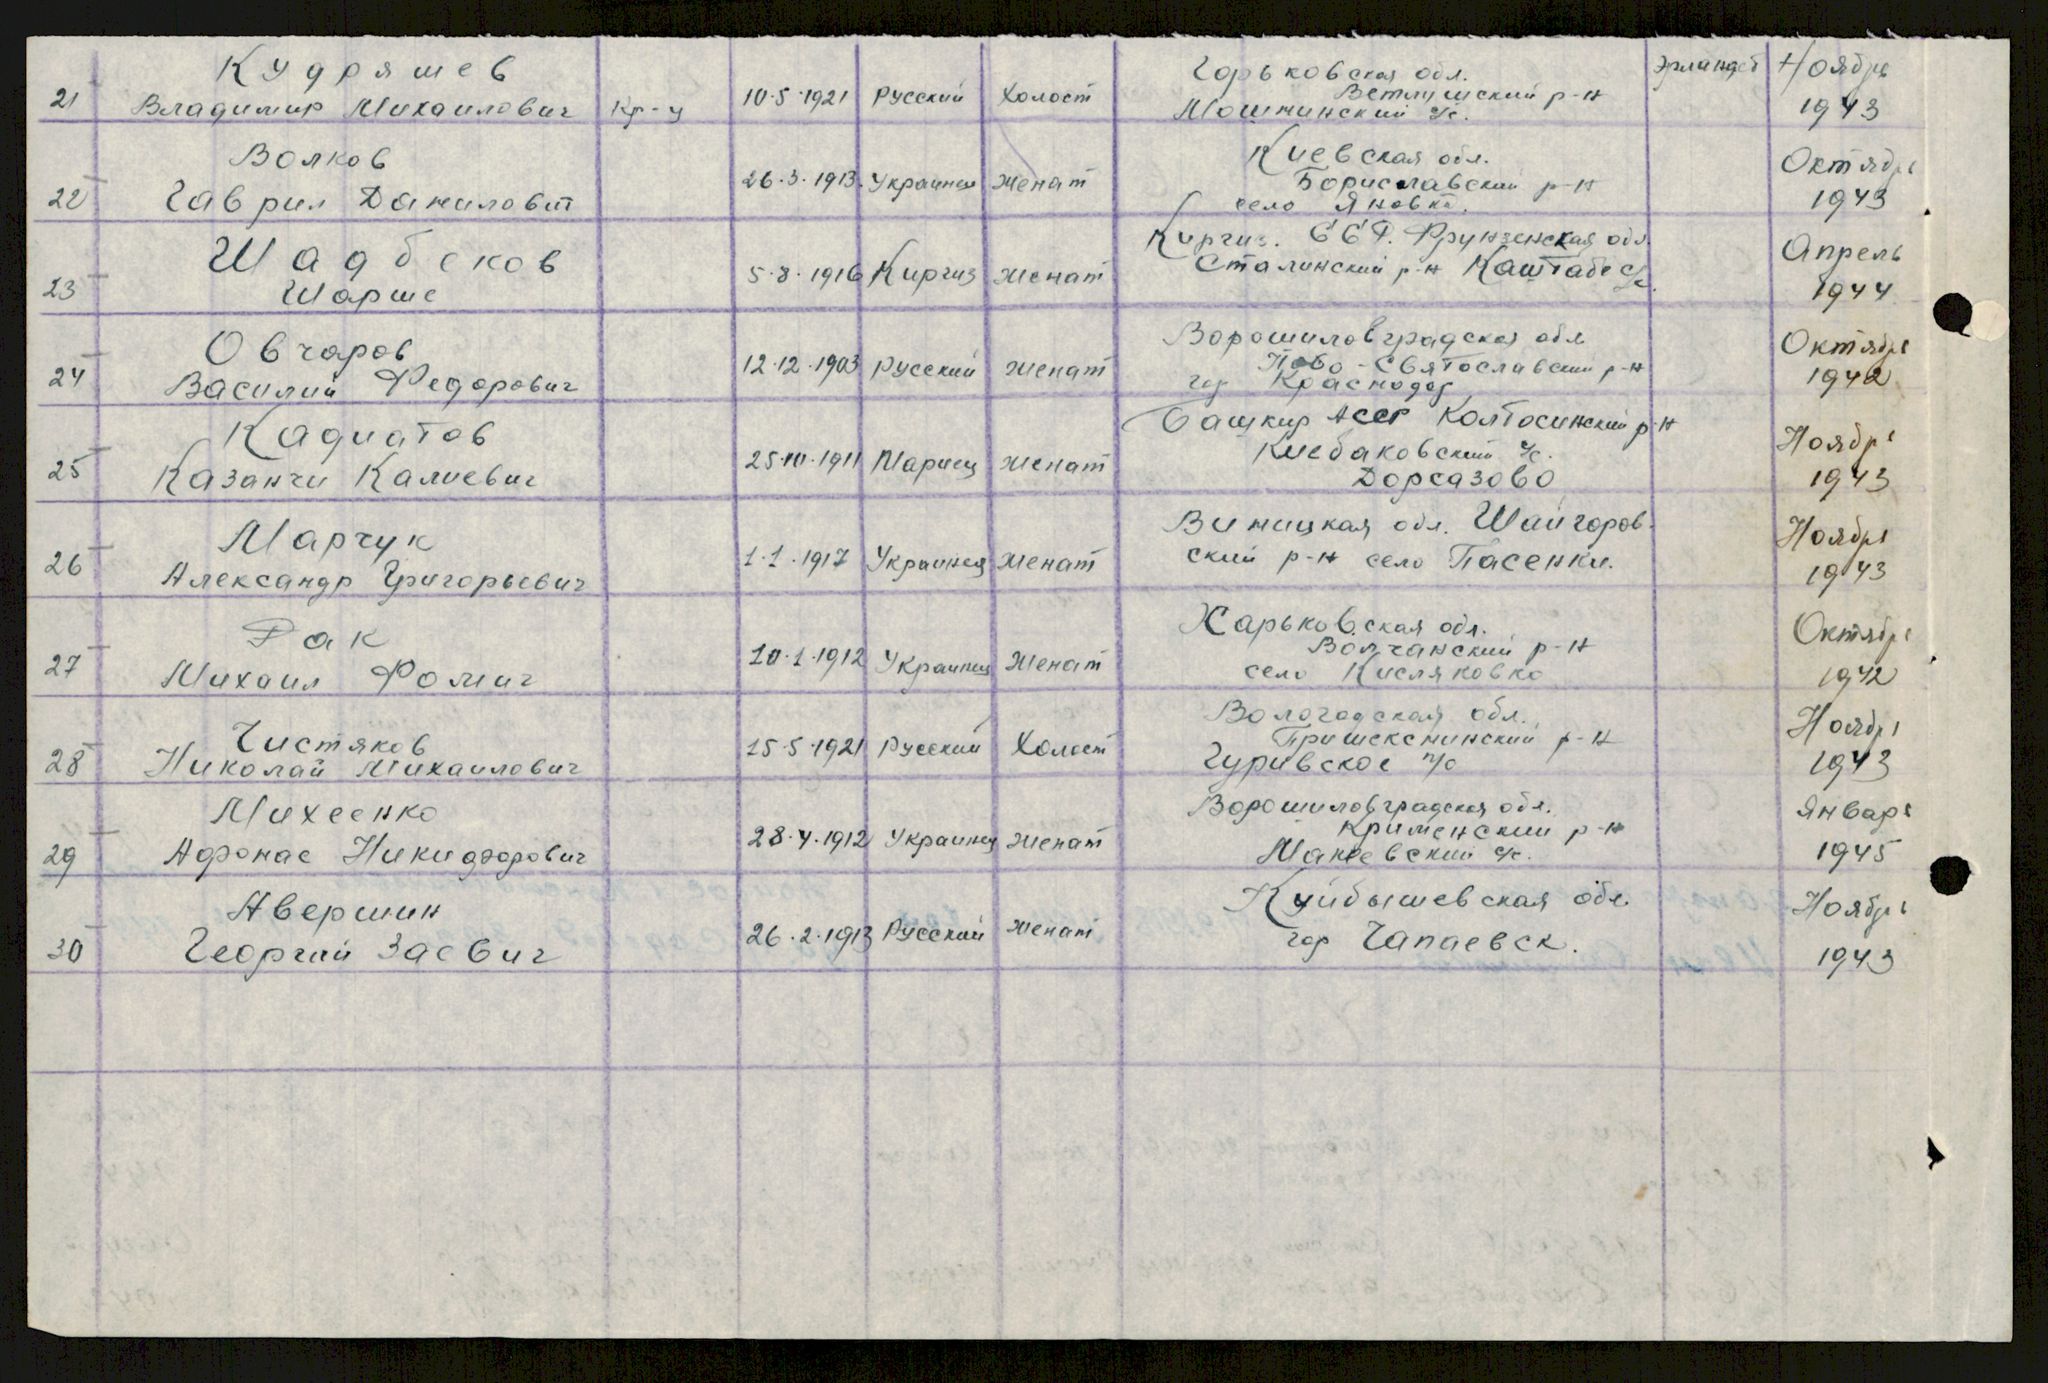 21 Кудряшев
Владимир Михаилович Кр-ц 10.5.1921 Русский Холост Горьковская обл. Эрландсб Ноябрь
Ветлушский р-н
Мошнинский с/с. 1943
22 Волков
Гаврил Даниловит 26.3.1913. Украинец Женат Киевская обл. Октябрь
Бориславский р-н
село Яновка. 1943
23 Шадбеков
Шарше 5.8.1916 Киргиз Женат Киргиз. ССР. Фрунзенская обл. Апрель
Сталинский р-н Каштабе с/с. 1944
24 Овчаров
Василий Федорович 12.12.1903 Русский Женат Ворошиловградская обл Октябрь
Ново-Святославский р-н
гор Краснодар 1942
25 Кадиатов
Казанчи Калиевич 25.10.1911 Мариец Женат Башкир АССР Колтосинский р-н Ноябрь
Киебаковский с/с.
Дорсазово 1943
26 Марчук
Александр Григорьевич 1.1.1917 Украинец Женат Виницкая обл. Шайгоров- Ноябрь
ский р-н село Пасенки. 1943
27 Рак
Михаил Фомич 10.1.1912 Украинец Женат Харьковская обл. Октябрь
Волчанский р-н
село Кисляковко 1942
28 Чистяков
Николай Михаилович 15.5.1921 Русский Холост Вологодская обл. Ноябрь
Пришекснинский р-н
Гуривское п/о 1943
29 Михеенко
Афонас Никифорович 28.4.1912 Украинец Женат Ворошиловградская обл. Январь
Кременский р-н
Макеевский с/с. 1945
30 Авершин
Георгий Заевич 26.2.1913 Русский Женат Куйбышевская обл. Ноябрь
гор Чапаевск. 1943